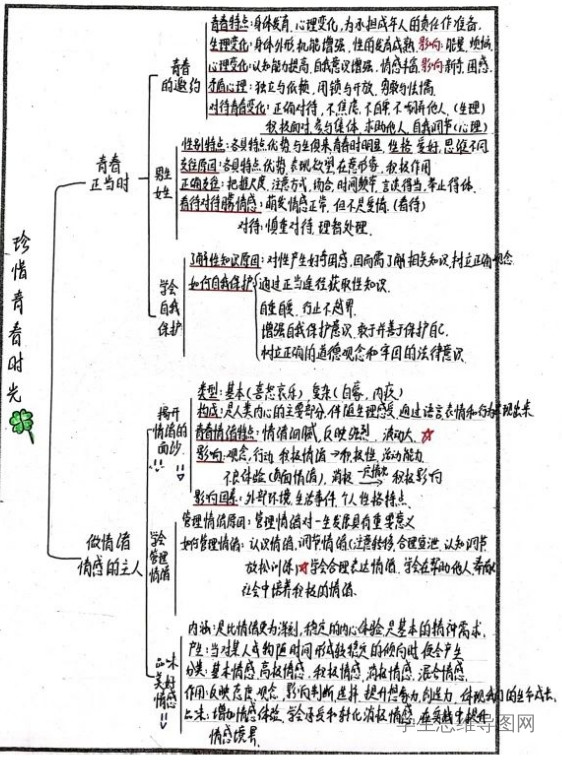 珍惜青春时光
青春正当时
青春的邀约
青春特点:身体发育,心理变化,为承担成年人的责任作准备.
生理变化:身体外形,机能增强,性的发育成熟.影响:能量,烦恼
心理变化:认知能力提高,自我意识增强,情感丰富.影响:新奇,困惑.
矛盾心理:独立与依赖,闭锁与开放,勇敢与怯懦.
对待青春变化:正确对待,不焦虑,不自卑,不嘲弄他人,(生理)
积极面对,参与集体,求助他人,自我调节(心理)
男生女生
性别特点:各具特点,优势与生俱来,青春时明显,性格,爱好,思维不同
交往原因:各具特点,优势,表现欲望,在意形象,积极作用
正确交往:把握尺度,注意方式,场合,时间,频率,言谈得当,举止得体.
看待对待朦胧情感:萌发情感正常,但不是爱情.(看待)
对待:慎重对待,理智处理.
学会自我保护
了解性知识原因:对性产生好奇困惑,因而需了解相关知识,树立正确观念
如何自我保护
通过正当途径获取性知识.
自重自爱,行止不越界.
增强自我保护意识,敢于并善于保护自己.
树立正确的道德观念和牢固的法律意识.
做情绪情感的主人
揭开情绪的面纱
类型:基本(喜怒哀乐) 复杂(自豪,内疚)
构成:是人类内心的主要部分,伴随生理感受,通过语言表情和行为表现出来
青春情绪特点:情绪细腻,反映强烈,波动大,☆
影响:观念,行动,积极情绪→积极性,活动能力
不良体验(负面情绪),消极 一定情况→ 积极影响
影响因素:外部环境,生活事件,个人性格特点.
学会管理情绪
管理情绪原因:管理情绪对一生发展具有重要意义
如何管理情绪:认识情绪,调节情绪(注意转移,合理宣泄,认知调节
放松训练)☆学会合理表达情绪,学会在帮助他人,
社会中培养积极的情绪.
品味美好情感
内涵:是比情绪更为深刻,稳定的内心体验,是基本的精神需求.
产生:当对某人或物随时间形成较稳定的倾向时,便会产生
分类:基本情感,高级情感,积极情感,消极情感,混合情感.
作用:反映态度,观念,影响判断,选择,提升想象力,创造力,体现我们的生命成长.
品味:增加情感体验,学会承受和转化消极情感,在实践中提升
情感境界.
学生思维导图网